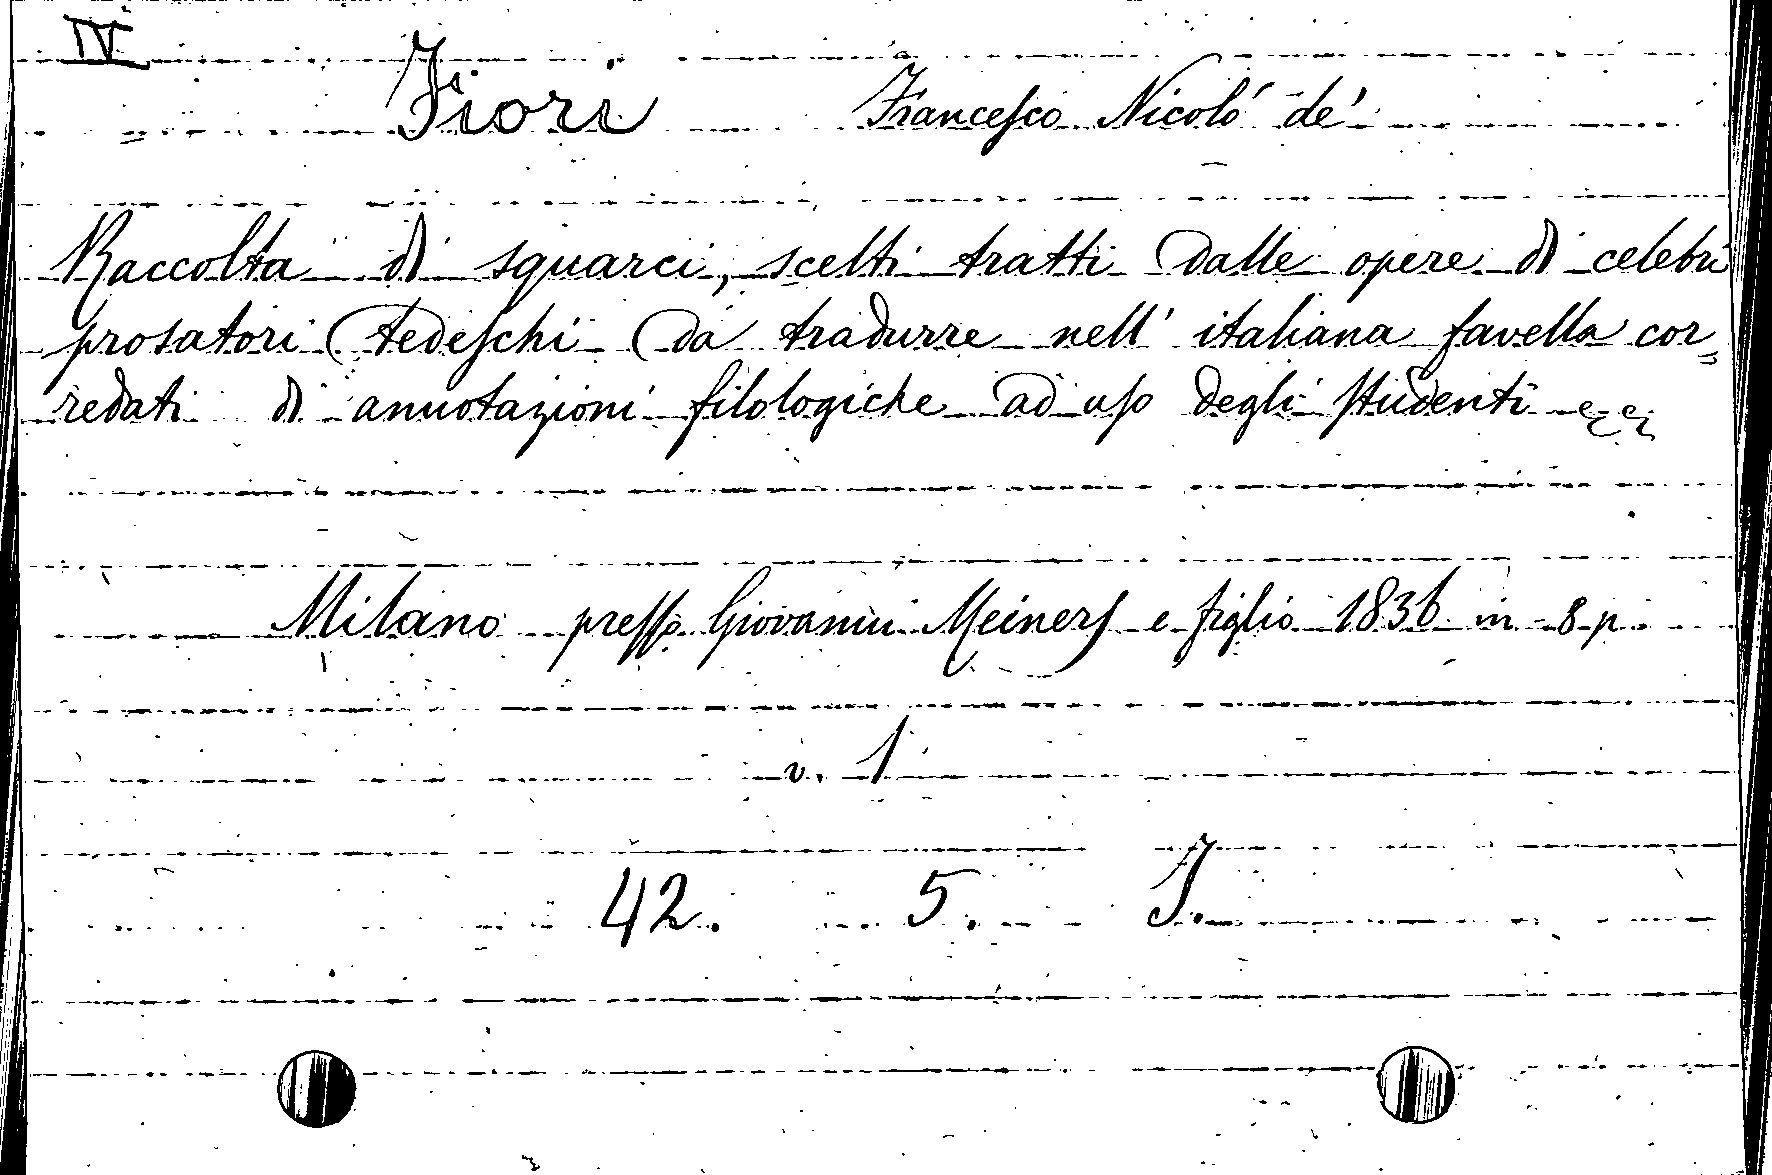 IV
Fiori Francesco Nicoló de'
Raccolta di squarci, scelti tratti dalle opere di celebri
prosatori tedeschi da tradurre nell' italiana favella cor=
redati di annotazioni filologiche ad uso degli studenti
Milano presso Giovanni Meiners e figlio 1836 in 8 p.
v. 1
42. 5. J.